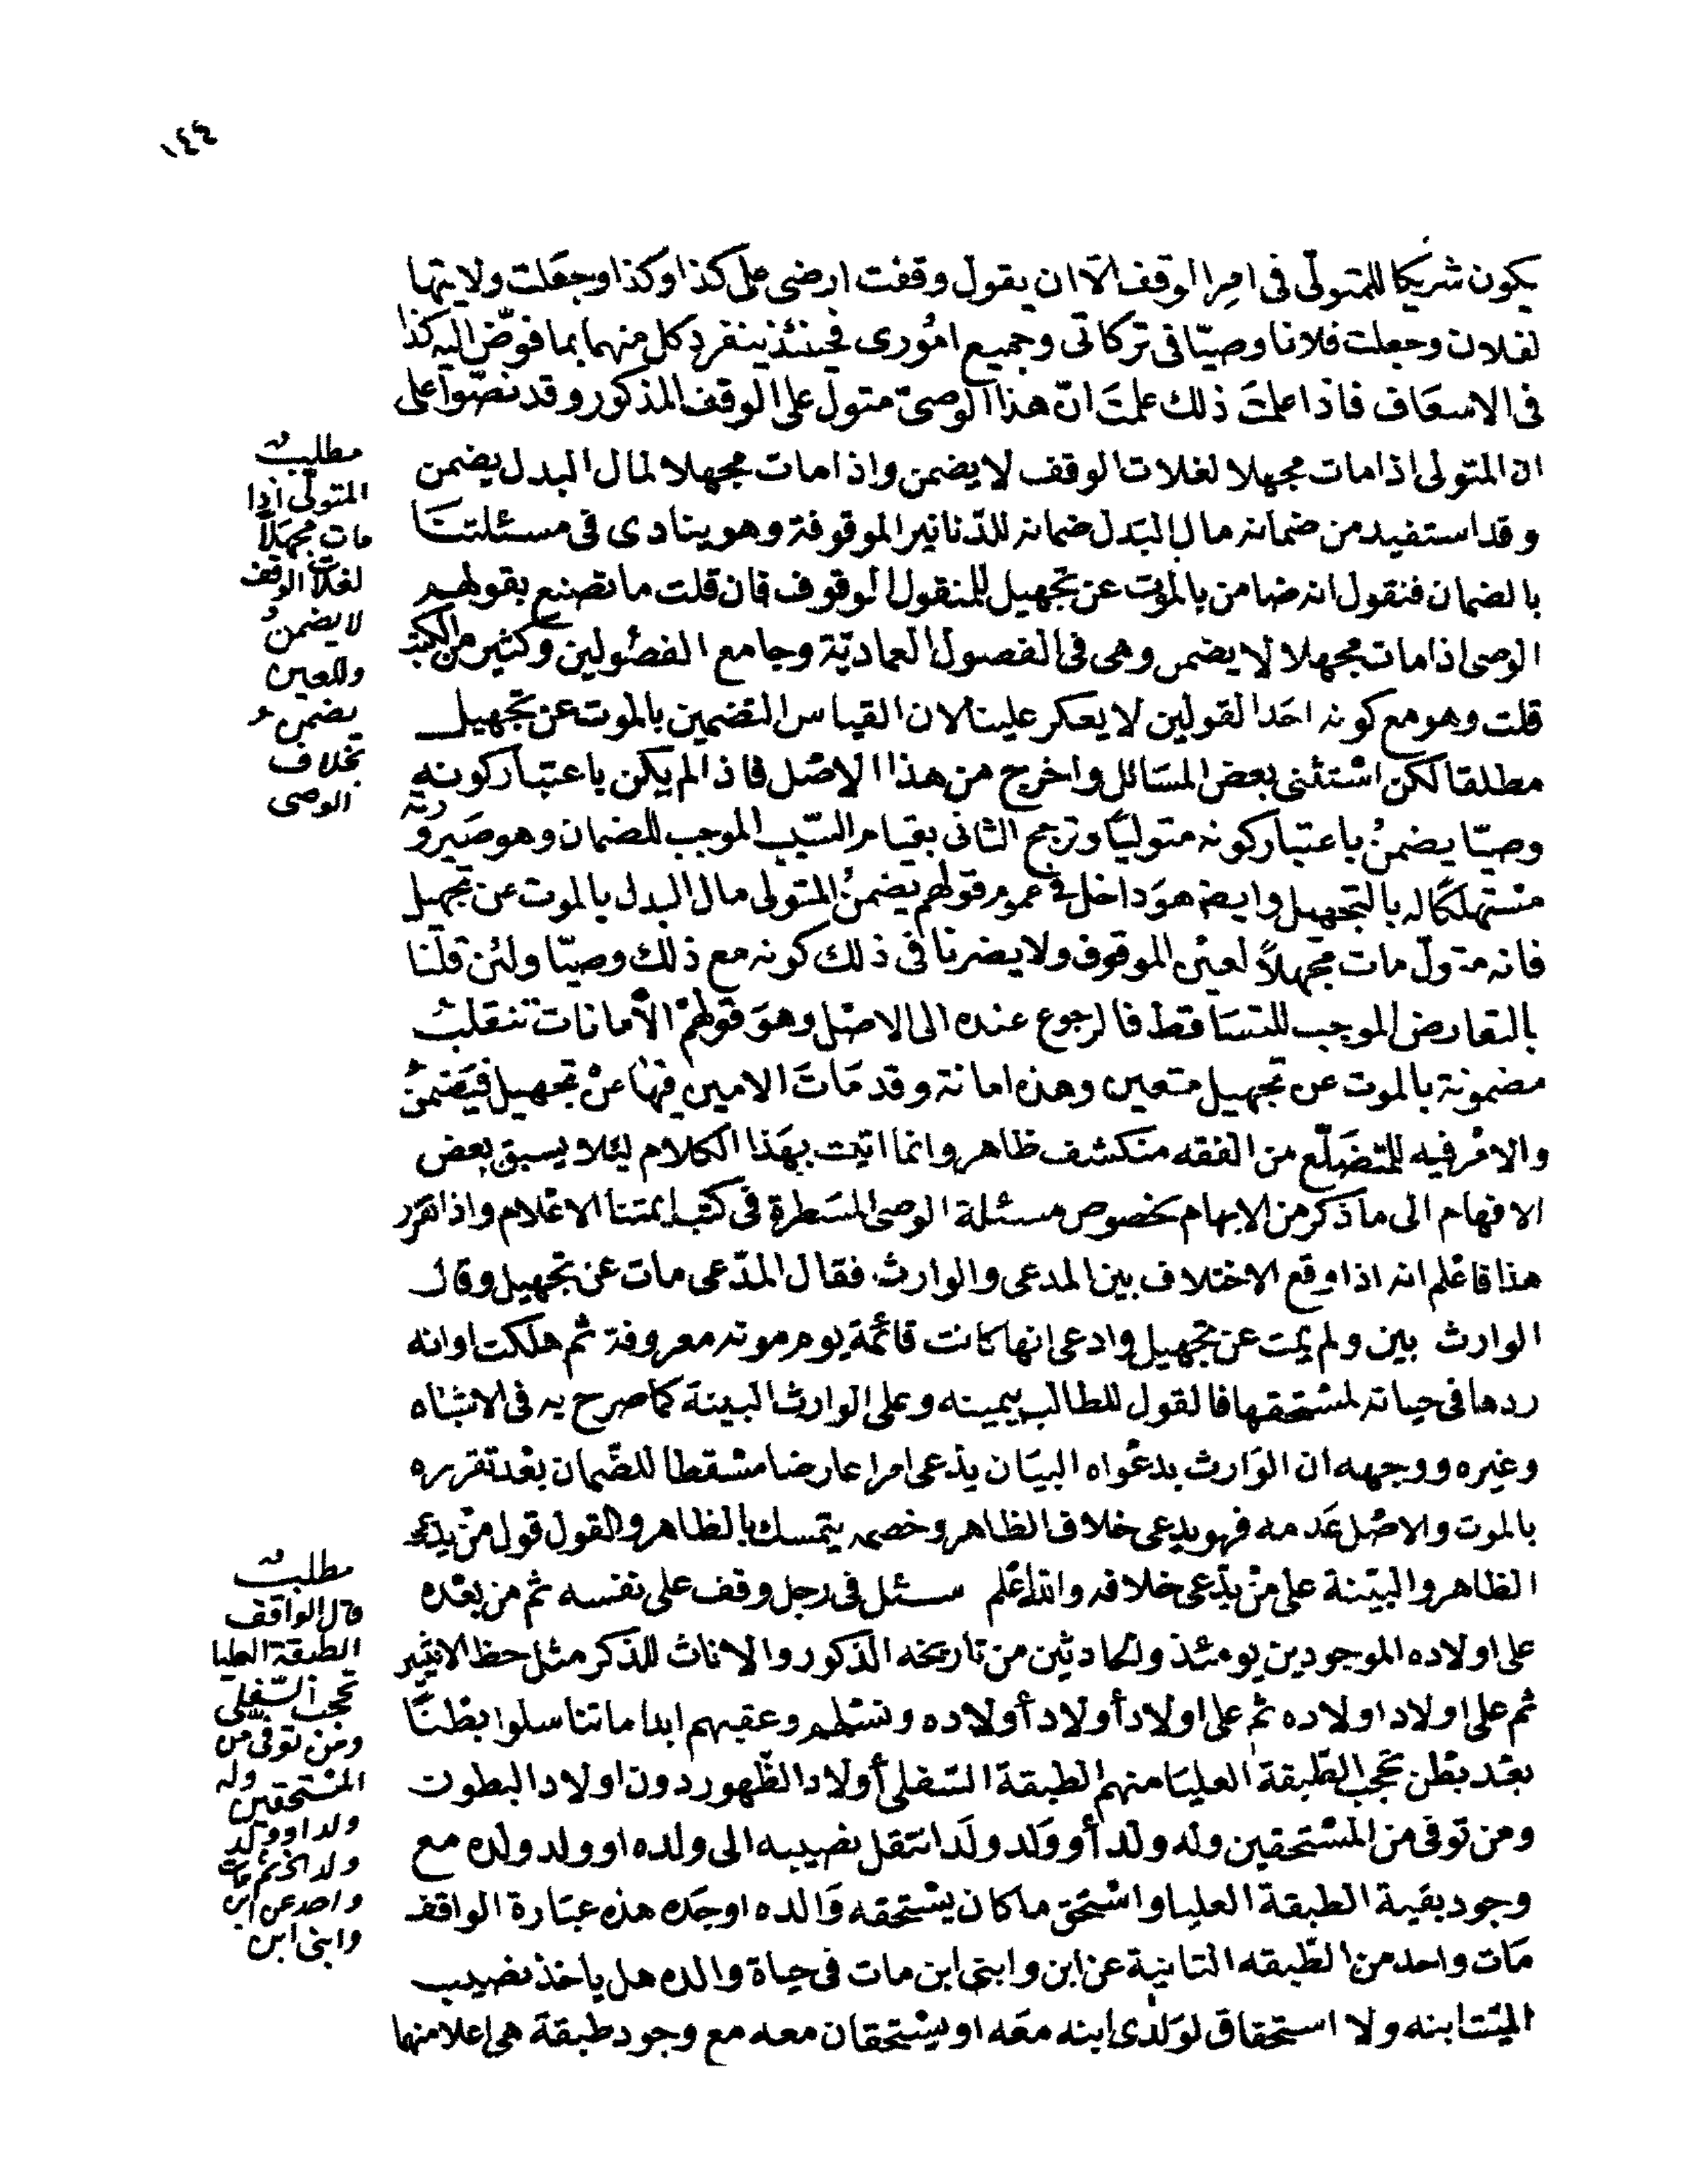 ١٤٩
يكون شريكا للمتولّى فى امر الوقف الّا ان يقول وقفت ارضى على كذا وكذا وجعلت ولايتها
لفلان وجعلت فلانا وصيّا فى تركاتى وجميع امورى فحينئذ ينفرد كل منهما بما فوّض اليه كذا
فى الاسعاف فاذا علمت ذلك علمت انّ هذا الوصىّ متول على الوقف المذكور وقد نصّوا على
ان المتولى اذا مات مجهلا لغلات الوقف لا يضمن واذا مات مجهلا لمال البدل يضمن
وقد استفيد من ضمانه مال البدل ضمانه للدّنانير الموقوفة وهو ينادى فى مسئلتنا
بالضمان فنقول انه ضامن بالموت عن تجهيل للمنقول الموقوف فان قلت ما تصنع بقولهم
الوصى اذا مات مجهلا لا يضمن وهى فى الفصول العماديّة وجامع الفصولين وكثير من الكتب
قلت وهو مع كونه احد القولين لا يعكر علينا لان القياس التضمين بالموت عن تجهيل
مطلقا لكن استثنى بعض المسائل واخرج من هذا الاصل فاذا لم يكن باعتبار كونه
وصيّا يضمن باعتبار كونه متوليا وترجح الثانى بقيام السّبب الموجب للضمان وهو صيرورته
مستهلكا له بالتجهيل وايضه هو داخل فى عموم قولهم يضمن المتولى مال البدل بالموت عن تجهيل
فانه متولّ مات مجهلاً لعين الموقوف ولا يضرنا فى ذلك كونه مع ذلك وصيّا ولئن قلنا
بالتعارض الموجب للتساقط فالرجوع عنده الى الاصل وهو قولهم الأمانات تنقلب
مضمونة بالموت عن تجهيل متعين وهذه امانة وقد مات الامين فيها عن تجهيل فيضمن
والامر فيه للمتضلّع من الفقه منكشف ظاهر وانما اتيت بهذا الكلام لئلا يسبق بعض
الافهام الى ما ذكر من الابهام بخصوص مسئلة الوصى المسطرة فى كتب ائمتنا الاعلام واذا تقرر
هذا فاعلم انه اذا وقع الاختلاف بين المدعى والوارث فقال المدّعى مات عن تجهيل وقال
الوارث بين ولم يمت عن تجهيل وادعى انها كانت قائمة يوم موته معروفة ثم هلكت او انه
ردها فى حياته لمستحقها فالقول للطالب بيمينه وعلى الوارث البينة كما صرح به فى الاشباه
وغيره ووجهه ان الوارث بدعواه البيان يدّعى امرا عارضا مسقطا للضّمان بعد تقرره
بالموت والاصل عدمه فهو يدعى خلاف الظاهر وخصمه يتمسك بالظاهر والقول قول من يدعى
الظاهر والبيّنة على من يدّعى خلافه والله اعلم سئل فى رجل وقف على نفسه ثم من بعده
على اولاده الموجودين يومئذ والحادثين من تاريخه الذكور والاناث للذكر مثل حظ الانثيين
ثم على اولاد اولاده ثم على اولاد أولاد أولاده ونسلهم وعقبهم ابدا ما تناسلوا بطنا
بعد بطن تحجب الطّبقة العليا منهم الطبقة السفلى أولاد الظّهور دون اولاد البطون
ومن توفى من المستحقين وله ولد أو ولد ولد انتقل نصيبه الى ولده او ولد ولده مع
وجود بقية الطبقة العليا واستحق ما كان يستحقه والده او جده هذه عبارة الواقف
مات واحد من الطّبقه الثانية عن ابن وابنى ابن مات فى حياة والده هل ياخذ نصيب
الميّت ابنه ولا استحقاق لولدى ابنه معه او يستحقان معه مع وجود طبقة هى اعلا منها
مطلب
المتولّى اذا
مات مجهلا
لغلات الوقف
لا يضمن
وللعين
يضمن
بخلاف
الوصى
مطلب
قال الواقف
الطبقة العليا
تحجب السّفلى
ومن توفى من
المستحقين وله
ولد او ولد
ولد الخ ثم مات
واحد عن ابن
وابنى ابن